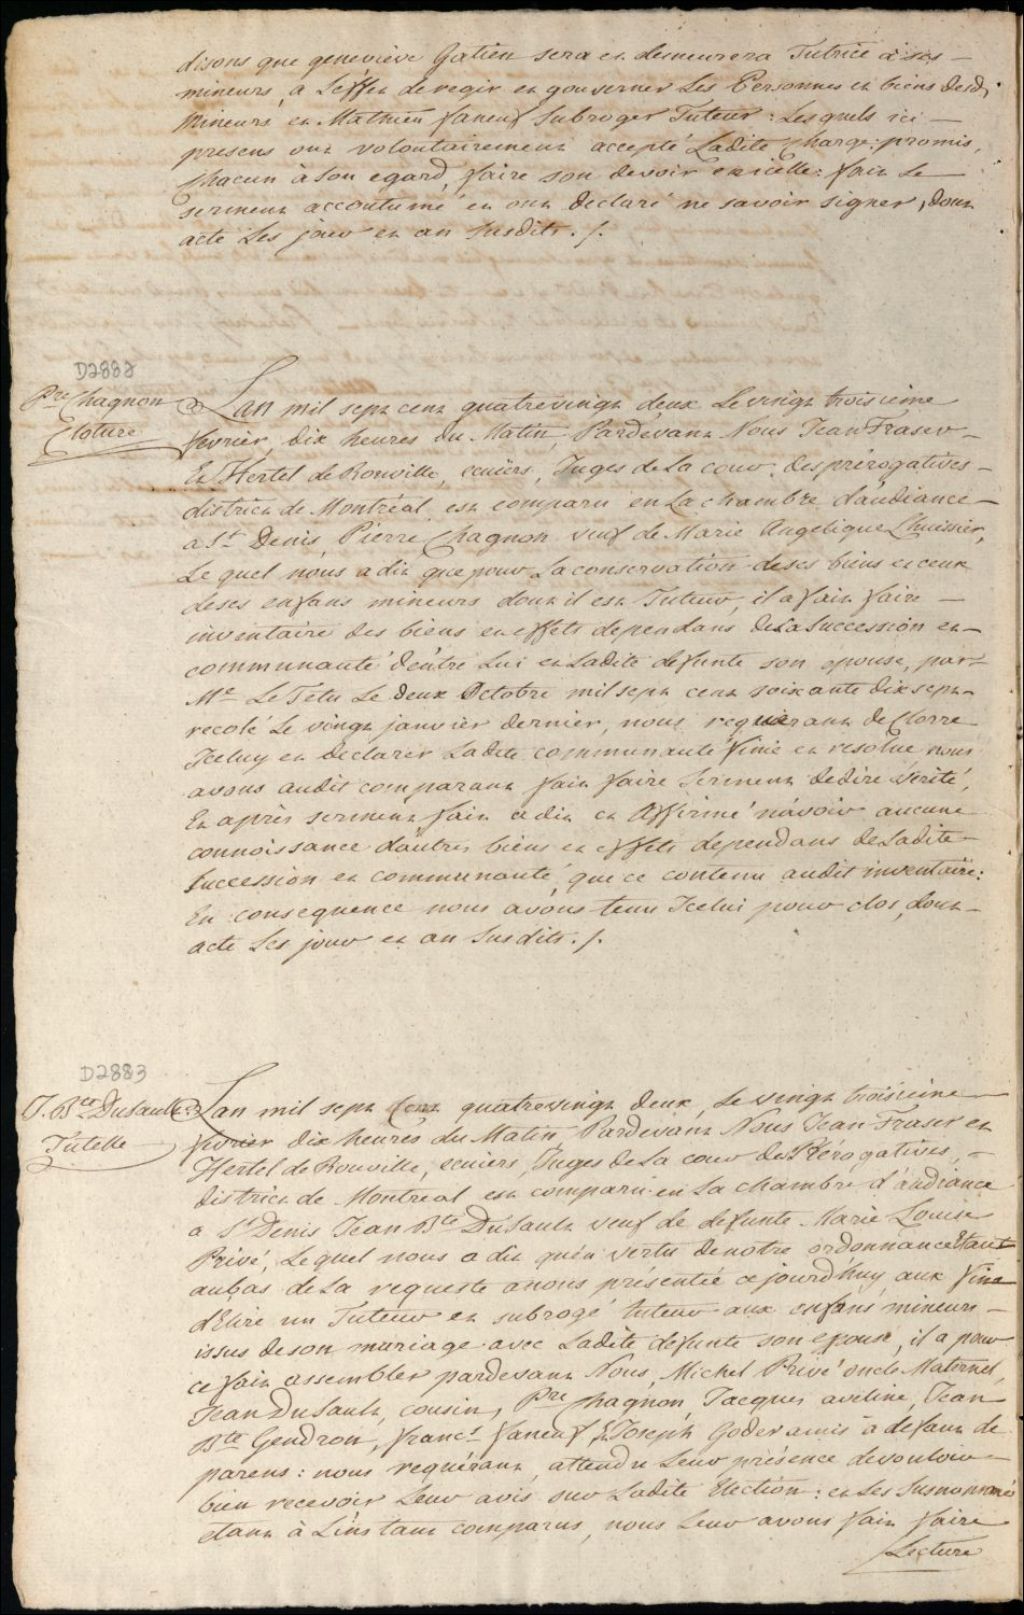 disons que geneviève Gatien sera et demeurera Tutrice à ses
mineurs, a L'effet de regir et gouverner Les Personnes et biens desd.
Mineurs et Mathieu faneuf Subroger Tuteur : Lesquels ici
presens ont volontairement accepté Ladite Charge; promis,
Chacun à son egard, faire son devoir en icelle: fait Le
serment accoutumé et ont declaré ne savoir signer, dont
acte Les jour et an Susdits. /.
D2882
Pre. Chagnon
Cloture
Lan mil sept cent quatrevingt deux Le vingt troisieme
fevrier, dix heures du Matin, Pardevant Nous Jean Fraser
Et Hertel de Rouville, ecuiers, Juges de La cour des prérogatives
district de Montréal est comparu en La chambre d'audiance
a St. Denis, Pierre Chagnon veuf de Marie Angelique Lhuissier,
Le quel nous a dit que pour La conservation de ses biens et ceux
de ses enfans mineurs dont il est Tuteur, il a fait faire
inventaire des biens et effets dependans de La Succession et
communauté d'entre Lui et Ladite defunte son epouse, par
Me. Le Tetu Le deux Octobre mil sept cent soixante dix sept
recolé Le vingt janvier dernier, nous requerant de Clorre
Iceluy et declarer Ladite communauté finie et resolue nous
avons audit comparant fait faire Serment de dire vérité,
Et après serment fait a dit et Affirmé n'avoir aucune
connoissance d'autres biens et effets dependans de Ladite
Succession et communauté, que ce contenu audit inventaire:
En consequence nous avons tenu Icelui pour clos, dont
acte Les jour et an Susdits. /.
D2883
J. Bte DuSault
Tutelle
Lan mil sept Cent quatrevingt deux, Le vingt troisieme
fevrier dix heures du Matin, Pardevant Nous Jean Fraser et
Hertel de Rouville, ecuiers, Juges de La cour des Prérogatives,
district de Montreal est comparu en La chambre d'audiance
a St Denis Jean Bte DuSault veuf de defunte Marie Louise
Privé, Lequel nous a dit qu'en vertu de notre ordonnance Etant
au bas de La requeste a nous présentée ce jourd'huy, aux fins
d'Elire un Tuteur et subrogé tuteur aux enfans mineurs
issus de son mariage avec Ladite defunte son epouse, il a pour
ce fait assembler pardevant Nous, Michel Privé oncle Maternel,
Jean DuSault, cousin, Pre Chagnon, Jacques aveline, Jean
Bte Gendron, francs. faneuf & Joseph Goder amis à defaut de
parens: nous requérant, attendu Leur présence de vouloir
bien recevoir Leur avis sur Ladite Election: et Les Susnommés
etant à L'instant comparus, nous Leur avons fait faire
Lecture